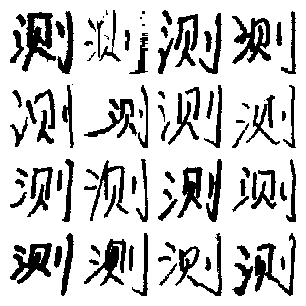 测测测测
测测测测
测测测测
测测测测